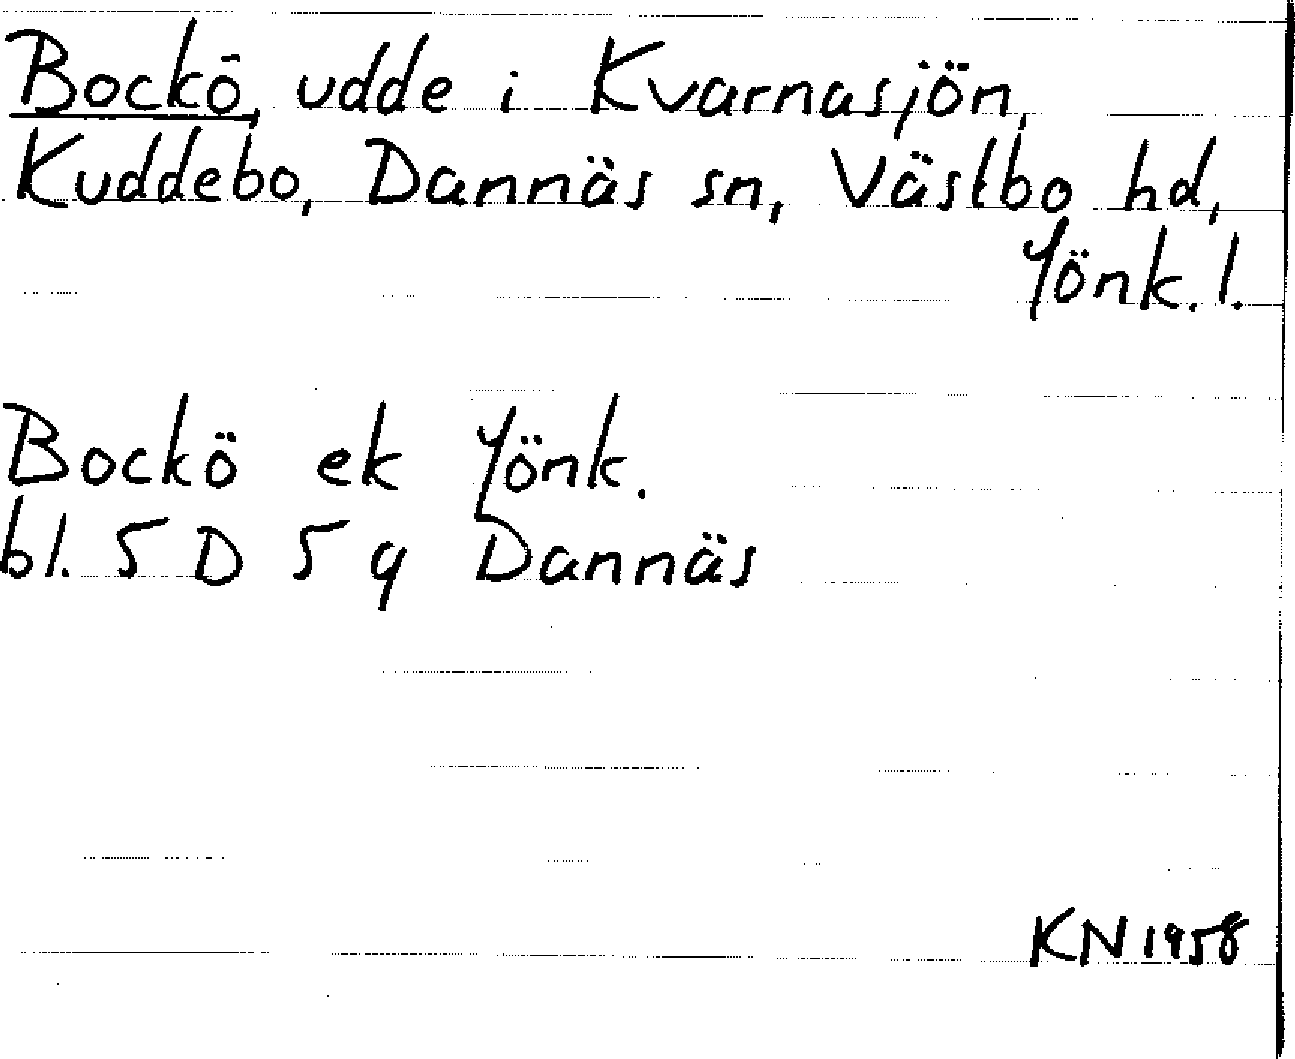 Bockö, udde i Kvarnasjön,
Kuddebo, Dannäs sn, Västbo hd,
Jönk. l.
Bockö ek Jönk.
bl. 5 D 5 q Dannäs
KN 1958